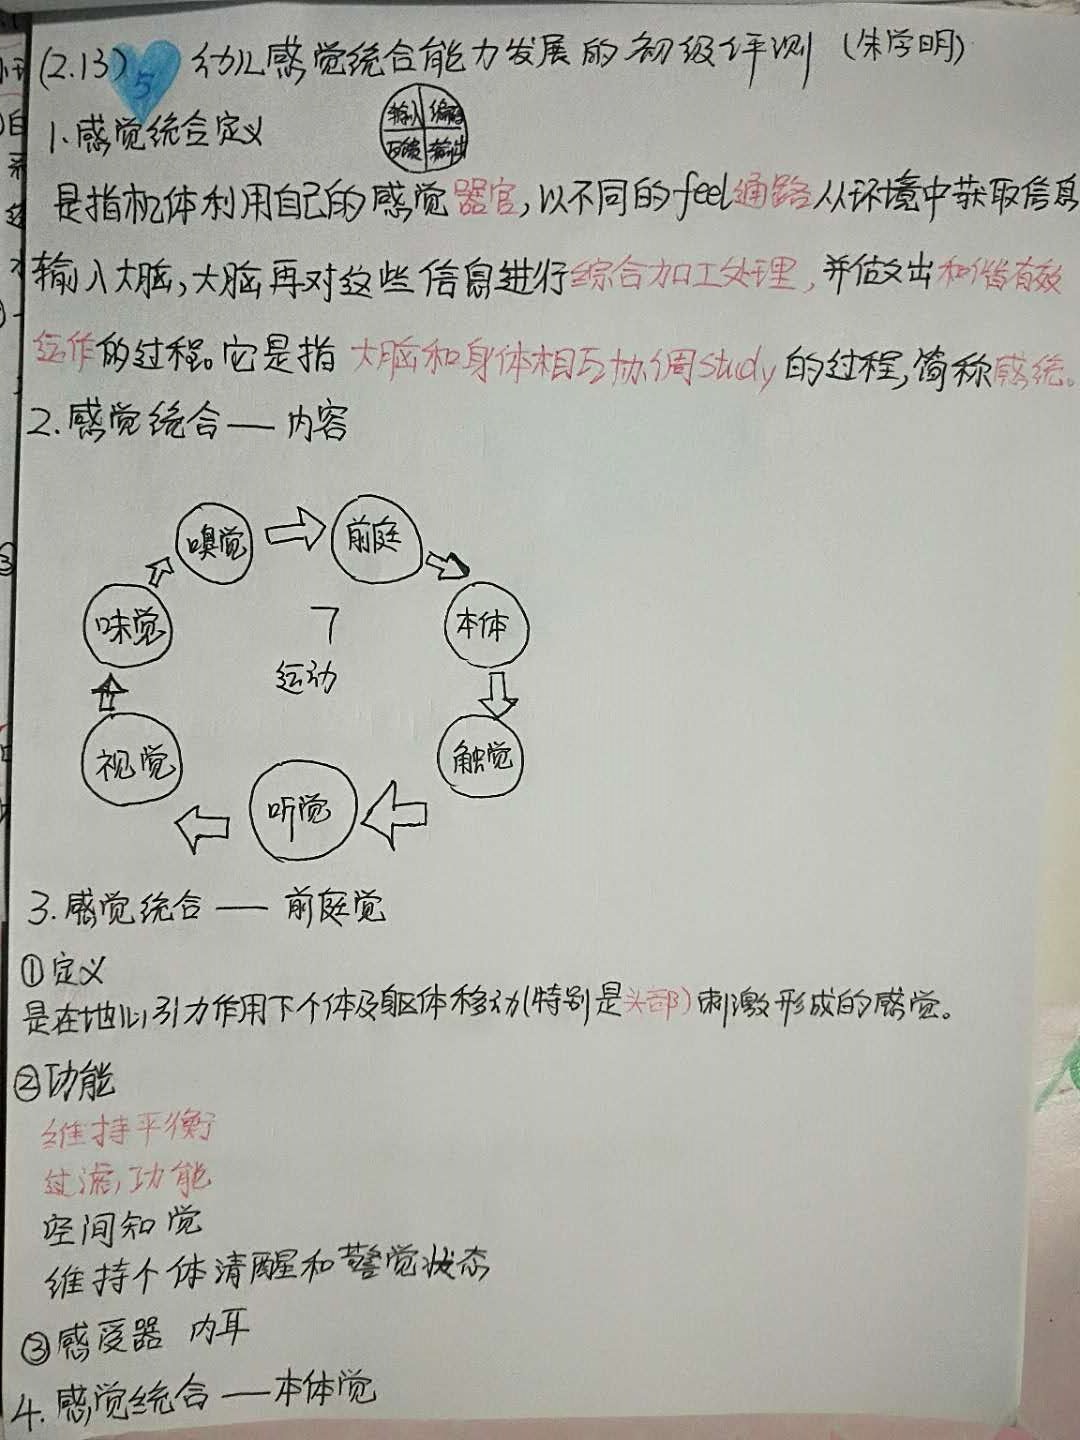 (2.13) 5 幼儿感觉统合能力发展的初级评测 (朱学明)
1.感觉统合定义
输入 编码
反馈 输出
是指机体利用自己的感觉器官,以不同的feel通路从环境中获取信息
输入大脑,大脑再对这些信息进行综合加工处理,并做出和谐有效
运作的过程。它是指 大脑和身体相互协调study的过程,简称感统。
2.感觉统合—内容
嗅觉
前庭
味觉
本体
7
运动
视觉
触觉
听觉
3.感觉统合—前庭觉
①定义
是在地心引力作用下个体及躯体移动(特别是头部)刺激形成的感觉。
②功能
维持平衡
过滤功能
空间知觉
维持个体清醒和警觉状态
③感受器 内耳
4.感觉统合—本体觉